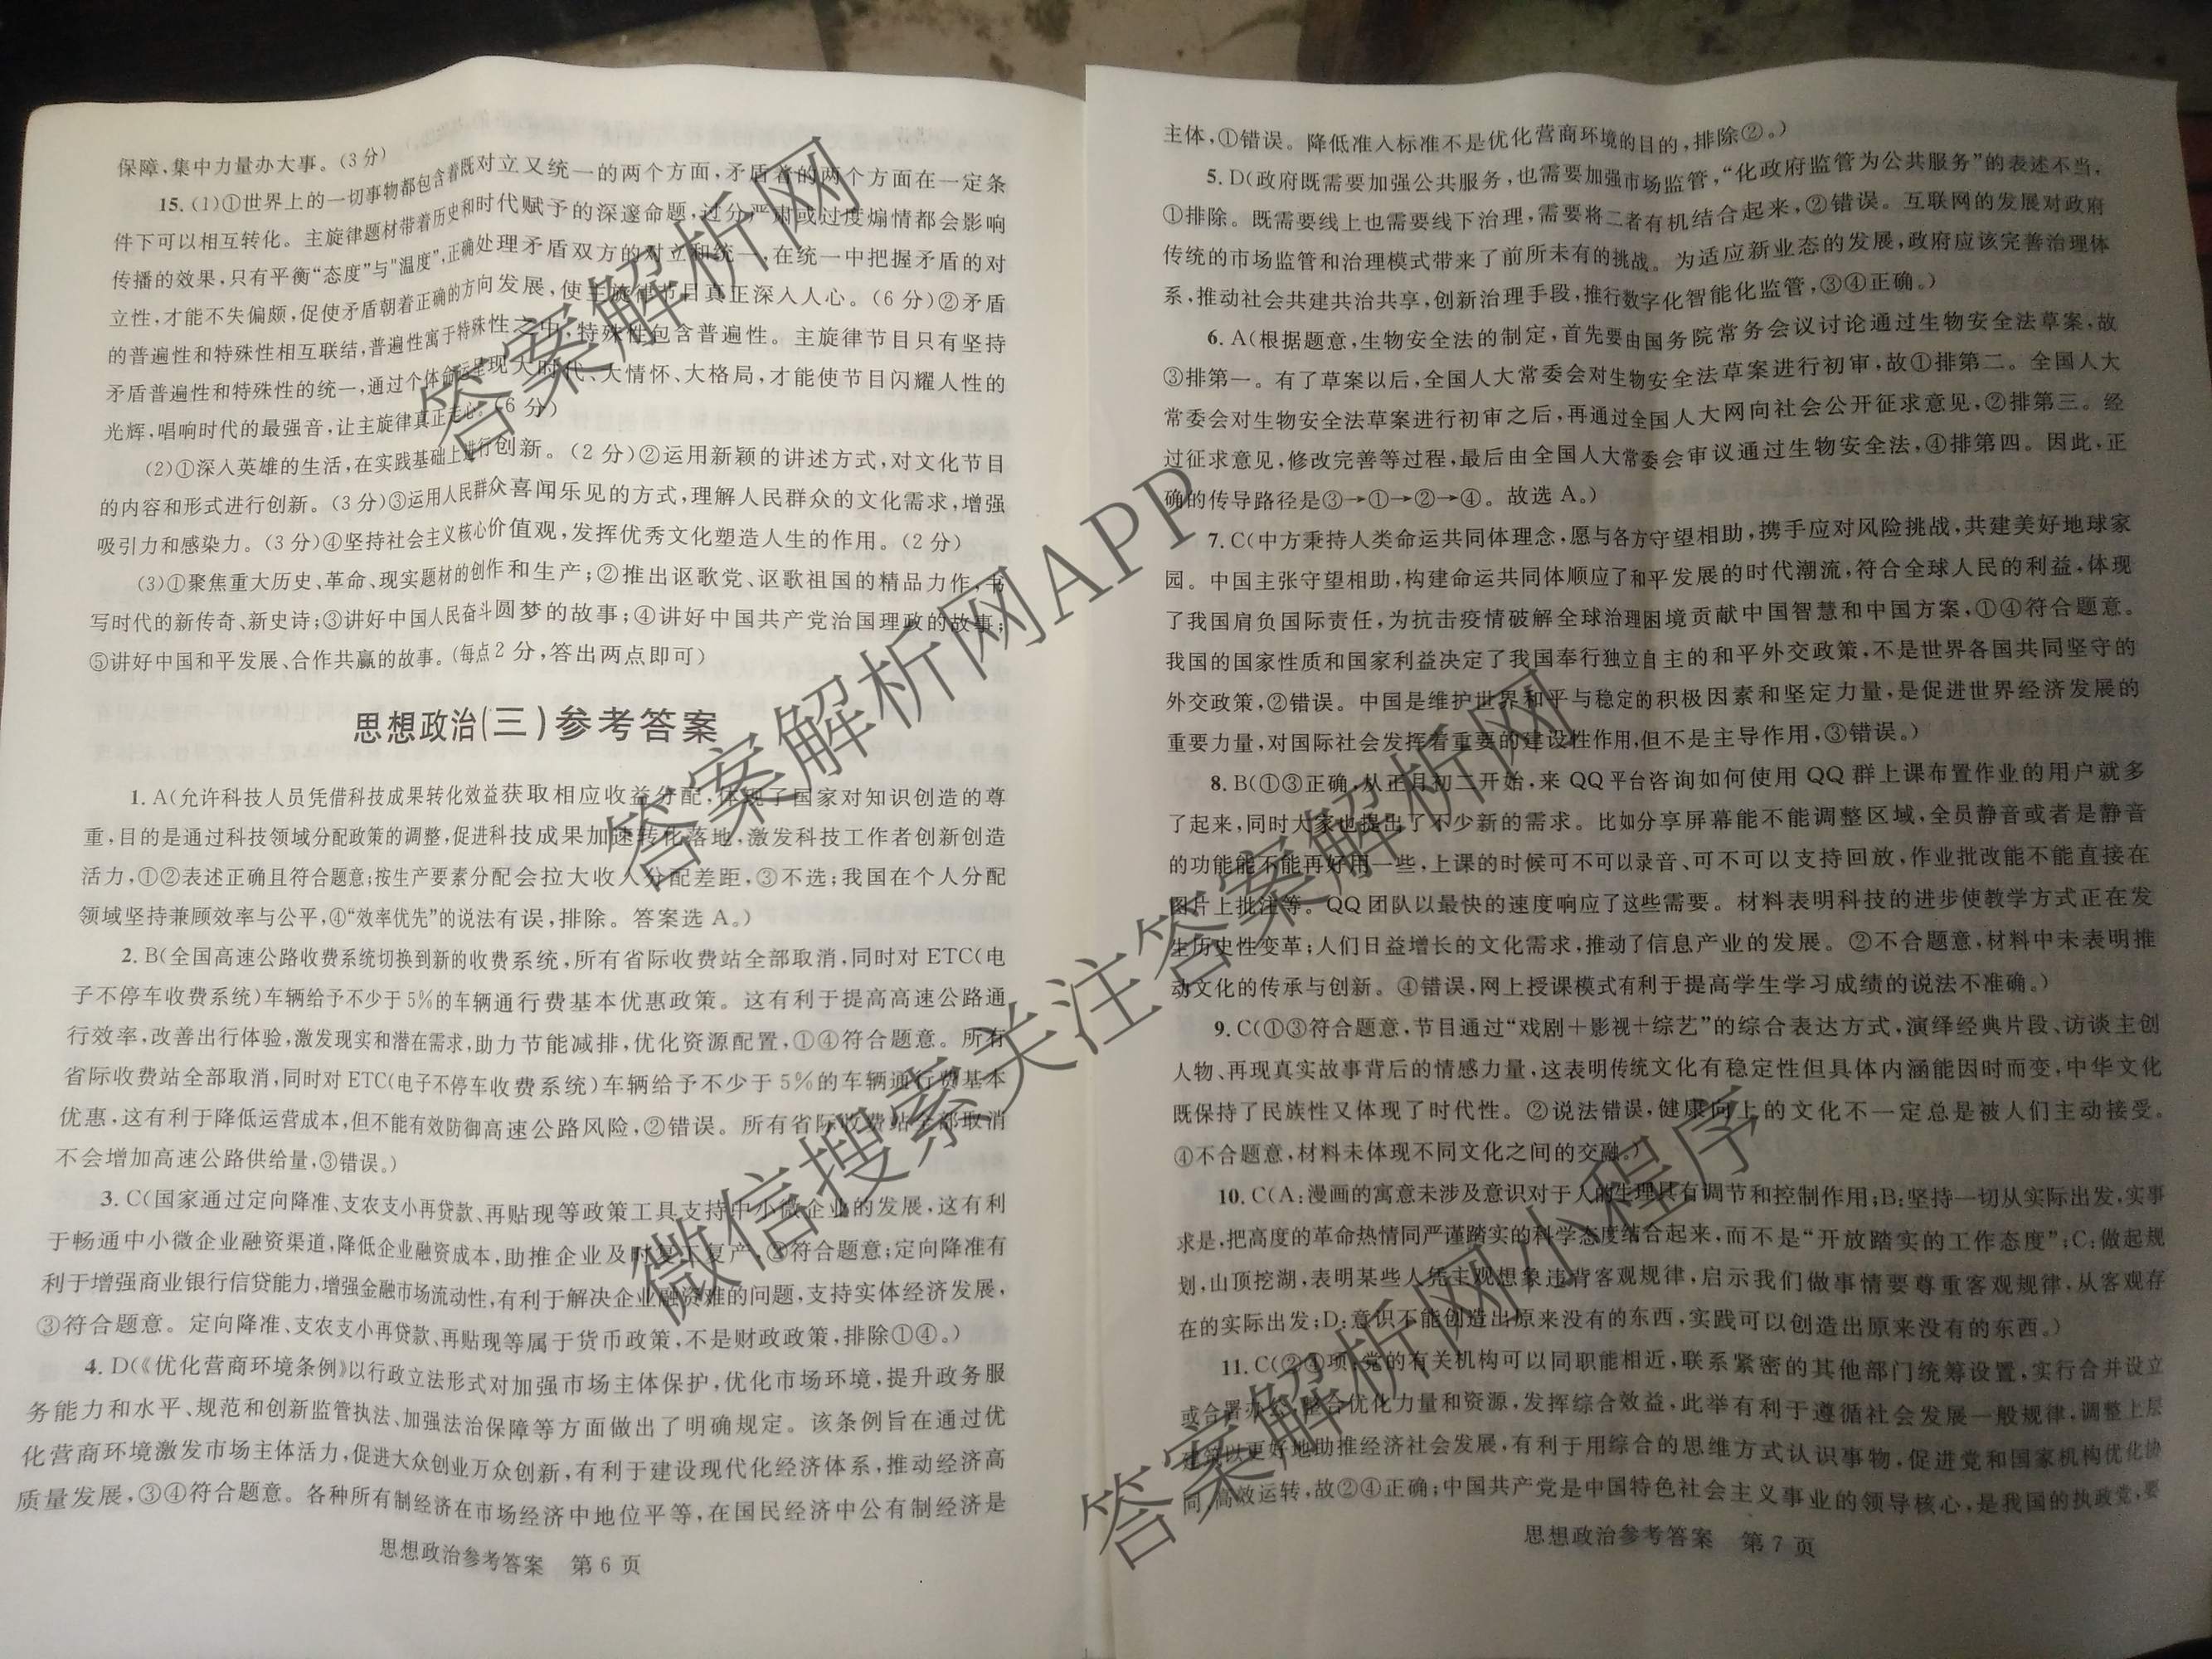 保障,集中力量办大事。(3分)
15.(1)①世界上的一切事物都包含着既对立又统一的两个方面,矛盾着的两个方面在一定条
件下可以相互转化。主旋律题材带着历史和时代赋予的深邃命题,过分严肃或过度煽情都会影响
传播的效果,只有平衡“态度”与"温度",正确处理矛盾双方的对立和统一,在统一中把握矛盾的对
立性,才能不失偏颇,促使矛盾朝着正确的方向发展,使主旋律节目真正深入人心。(6分)②矛盾
的普遍性和特殊性相互联结,普遍性寓于特殊性之中,特殊性包含普遍性。主旋律节目只有坚持
矛盾普遍性和特殊性的统一,通过个体命运呈现大时代、大情怀、大格局,才能使节目闪耀人性的
光辉,唱响时代的最强音,让主旋律真正走心。(6分)
(2)①深入英雄的生活,在实践基础上进行创新。(2分)②运用新颖的讲述方式,对文化节目
的内容和形式进行创新。(3分)③运用人民群众喜闻乐见的方式,理解人民群众的文化需求,增强
吸引力和感染力。(3分)④坚持社会主义核心价值观,发挥优秀文化塑造人生的作用。(2分)
(3)①聚焦重大历史、革命、现实题材的创作和生产;②推出讴歌党、讴歌祖国的精品力作,书
写时代的新传奇、新史诗;③讲好中国人民奋斗圆梦的故事;④讲好中国共产党治国理政的故事;
⑤讲好中国和平发展、合作共赢的故事。(每点2分,答出两点即可)
思想政治(三)参考答案
1. A(允许科技人员凭借科技成果转化效益获取相应收益分配,体现了国家对知识创造的尊
重,目的是通过科技领域分配政策的调整,促进科技成果加速转化落地,激发科技工作者创新创造
活力,①②表述正确且符合题意;按生产要素分配会拉大收入分配差距,③不选;我国在个人分配
领域坚持兼顾效率与公平,④“效率优先”的说法有误,排除。答案选A。)
2. B(全国高速公路收费系统切换到新的收费系统,所有省际收费站全部取消,同时对ETC(电
子不停车收费系统)车辆给予不少于5%的车辆通行费基本优惠政策。这有利于提高高速公路通
行效率,改善出行体验,激发现实和潜在需求,助力节能减排,优化资源配置,①④符合题意。所有
省际收费站全部取消,同时对ETC(电子不停车收费系统)车辆给予不少于5%的车辆通行费基本
优惠,这有利于降低运营成本,但不能有效防御高速公路风险,②错误。所有省际收费站全部取消
不会增加高速公路供给量,③错误。)
3. C(国家通过定向降准、支农支小再贷款、再贴现等政策工具支持中小微企业的发展,这有利
于畅通中小微企业融资渠道,降低企业融资成本,助推企业及时复工复产,②符合题意;定向降准有
利于增强商业银行信贷能力,增强金融市场流动性,有利于解决企业融资难的问题,支持实体经济发展,
③符合题意。定向降准、支农支小再贷款、再贴现等属于货币政策,不是财政政策,排除①④。)
4. D(《优化营商环境条例》以行政立法形式对加强市场主体保护,优化市场环境,提升政务服
务能力和水平、规范和创新监管执法、加强法治保障等方面做出了明确规定。该条例旨在通过优
化营商环境激发市场主体活力,促进大众创业万众创新,有利于建设现代化经济体系,推动经济高
质量发展,③④符合题意。各种所有制经济在市场经济中地位平等,在国民经济中公有制经济是
思想政治参考答案 第6页
主体,①错误。降低准入标准不是优化营商环境的目的,排除②。)
5. D(政府既需要加强公共服务,也需要加强市场监管,“化政府监管为公共服务”的表述不当,
①排除。既需要线上也需要线下治理,需要将二者有机结合起来,②错误。互联网的发展对政府
传统的市场监管和治理模式带来了前所未有的挑战。为适应新业态的发展,政府应该完善治理体
系,推动社会共建共治共享,创新治理手段,推行数字化智能化监管,③④正确。)
6. A(根据题意,生物安全法的制定,首先要由国务院常务会议讨论通过生物安全法草案,故
③排第一。有了草案以后,全国人大常委会对生物安全法草案进行初审,故①排第二。全国人大
常委会对生物安全法草案进行初审之后,再通过全国人大网向社会公开征求意见,②排第三。经
过征求意见,修改完善等过程,最后由全国人大常委会审议通过生物安全法,④排第四。因此,正
确的传导路径是③→①→②→④。故选A。)
7. C(中方秉持人类命运共同体理念,愿与各方守望相助,携手应对风险挑战,共建美好地球家
园。中国主张守望相助,构建命运共同体顺应了和平发展的时代潮流,符合全球人民的利益,体现
了我国肩负国际责任,为抗击疫情破解全球治理困境贡献中国智慧和中国方案,①④符合题意。
我国的国家性质和国家利益决定了我国奉行独立自主的和平外交政策,不是世界各国共同坚守的
外交政策,②错误。中国是维护世界和平与稳定的积极因素和坚定力量,是促进世界经济发展的
重要力量,对国际社会发挥着重要的建设性作用,但不是主导作用,③错误。)
8. B(①③正确,从正月初二开始,来QQ平台咨询如何使用QQ群上课布置作业的用户就多
了起来,同时大家也提出了不少新的需求。比如分享屏幕能不能调整区域,全员静音或者是静音
的功能能不能再好用一些,上课的时候可不可以录音、可不可以支持回放,作业批改能不能直接在
图片上批注等。QQ团队以最快的速度响应了这些需要。材料表明科技的进步使教学方式正在发
生历史性变革;人们日益增长的文化需求,推动了信息产业的发展。②不合题意,材料中未表明推
动文化的传承与创新。④错误,网上授课模式有利于提高学生学习成绩的说法不准确。)
9. C(①③符合题意,节目通过“戏剧+影视+综艺”的综合表达方式,演绎经典片段、访谈主创
人物、再现真实故事背后的情感力量,这表明传统文化有稳定性但具体内涵能因时而变,中华文化
既保持了民族性又体现了时代性。②说法错误,健康向上的文化不一定总是被人们主动接受。
④不合题意,材料未体现不同文化之间的交融。)
10. C(A:漫画的寓意未涉及意识对于人的生理具有调节和控制作用;B:坚持一切从实际出发,实事
求是,把高度的革命热情同严谨踏实的科学态度结合起来,而不是“开放踏实的工作态度”;C:做起规
划,山顶挖湖,表明某些人凭主观想象违背客观规律,启示我们做事情要尊重客观规律,从客观存
在的实际出发;D:意识不能创造出原来没有的东西,实践可以创造出原来没有的东西。)
11. C(②④项:党的有关机构可以同职能相近,联系紧密的其他部门统筹设置,实行合并设立
或合署办公,整合优化力量和资源,发挥综合效益,此举有利于遵循社会发展一般规律,调整上层
建筑以更好地助推经济社会发展,有利于用综合的思维方式认识事物,促进党和国家机构优化协
同,高效运转,故②④正确;中国共产党是中国特色社会主义事业的领导核心,是我国的执政党,要
思想政治参考答案 第7页
答案解析网
微信搜索关注答案解析网
答案解析网APP
答案解析网小程序